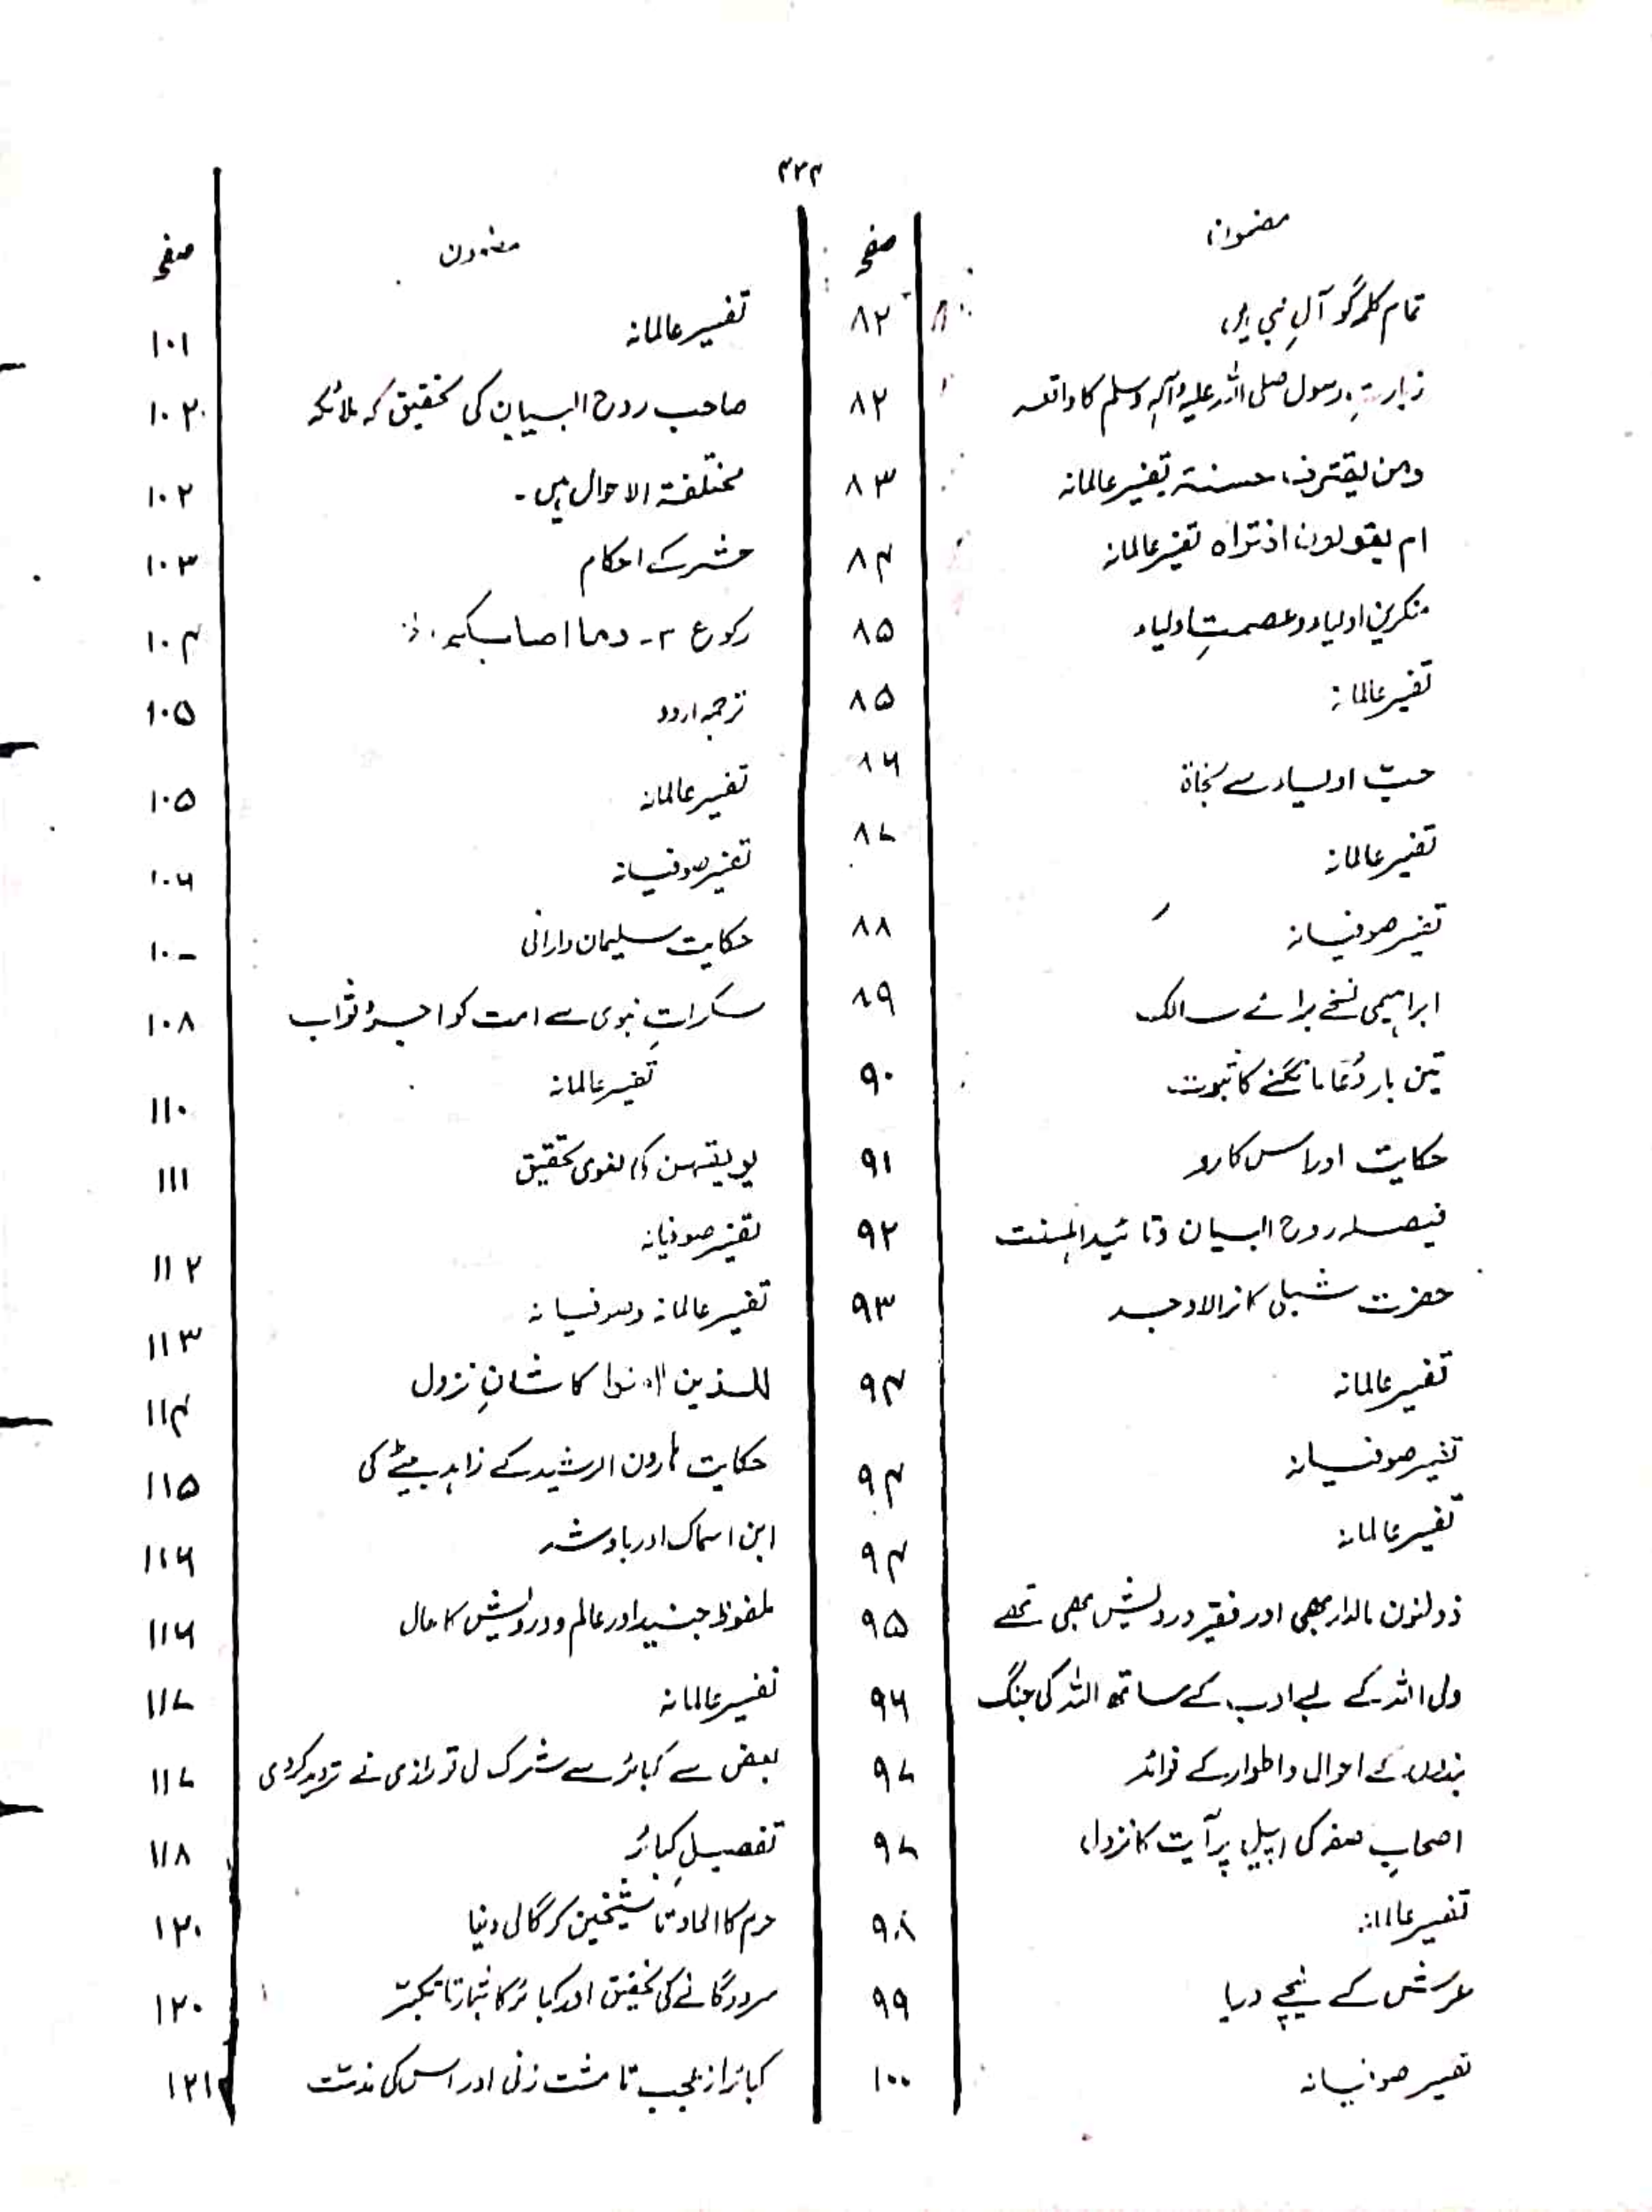 ۴۲۴
مضمون صفحہ
تمام کلمہ گو آلِ نبی ہیں ۸۲
زیارتِ رسول صلی اللہ علیہ وآلہٖ وسلم کا واقعہ ۸۲
ومن یقترف حسنۃ تفسیر عالمانہ ۸۳
ام یقولون افتراہ تفسیر عالمانہ ۸۴
منکرین اولیاء وعصمتِ اولیاء ۸۵
تفسیر عالمانہ ۸۵
حبّ اولیاء سے نجاۃ ۸۶
تفسیر عالمانہ ۸۷
تفسیر صوفیانہ ۸۸
ابراہیمی نسخے برائے سالک ۸۹
تین بار دُعا مانگنے کا ثبوت ۹۰
حکایت اور اس کا رد ۹۱
فیصلہ روح البیان وتائید اہلسنت ۹۲
حضرت شبلی کا نرالا وجد ۹۳
تفسیر عالمانہ ۹۴
تفسیر صوفیانہ ۹۴
تفسیر عالمانہ ۹۴
ذولنون مالدار بھی اور فقیر درویش بھی تھے ۹۵
ولی اللہ کے بے ادب کے ساتھ اللہ کی جنگ ۹۶
بندوں کے احوال واطوار کے فوائد ۹۷
اصحابِ صفہ کی اپیل پر آیت کا نزول ۹۷
تفسیر عالمانہ ۹۸
عرش کے نیچے دریا ۹۹
تفسیر صوفیانہ ۱۰۰
مضمون صفحہ
تفسیر عالمانہ ۱۰۱
صاحب روح البیان کی تحقیق کہ ملائکہ ۱۰۲
مختلفۃ الاحوال ہیں۔ ۱۰۲
حشر کے احکام ۱۰۳
رکوع ۳۔ وما اصابکم ۱۰۴
ترجمہ اردو ۱۰۵
تفسیر عالمانہ ۱۰۵
تفسیر صوفیانہ ۱۰۶
حکایت سلیمان دارانی
سکراتِ نبوی سے امت کو اجر وثواب ۱۰۸
تفسیر عالمانہ ۱۱۰
یوبقہن کی لغوی تحقیق ۱۱۱
تفسیر صوفیانہ ۱۱۲
تفسیر عالمانہ وصوفیانہ ۱۱۳
للذین اٰمنوا کا شانِ نزول ۱۱۴
حکایت ہارون الرشید کے زاہد بیٹے کی ۱۱۵
ابن اسماک اور بادشہ ۱۱۶
ملفوظ جنید اور عالم ودرویش کا حال ۱۱۶
تفسیر عالمانہ ۱۱۷
بعض سے کبائر سے شرک لی تو رازی نے تردید کردی ۱۱۷
تفصیلِ کبائر ۱۱۸
حرم کا الحاد تا شیخین کر گالی دنیا ۱۲۰
سرود گانے کی تحقیق اور کبائر کا تا تکبّر ۱۲۰
کبائر از عجب تا مشت زنی اور اس کی مذمّت ۱۲۱